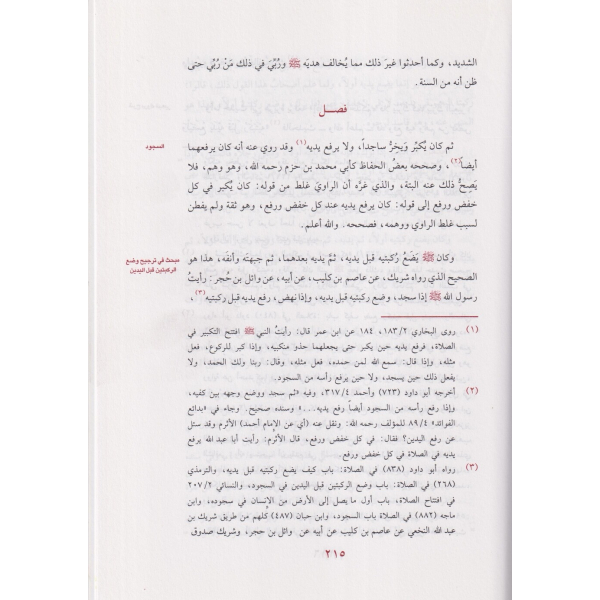 الشديد، وكما أحدثوا غيرَ ذلك مما يُخالف هديَه ﷺ ورُبِّيَ في ذلك مَنْ رُبِّي حتى
ظن أنه من السنة.
فصل
ثم كان يُكَبِّر وَيَخِرُّ ساجداً، ولا يرفع يديه(١) وقد روي عنه أنه كان يرفعهما
السجود
أيضاً(٢)، وصححه بعضُ الحفاظ كأبي محمد بن حزم رحمه الله، وهو وهم، فلا
يَصِحُّ ذلك عنه البتة، والذي غرَّه أن الراويَ غلط من قوله: كان يُكبر في كل
خفض ورفع إلى قوله: كان يرفع يديه عند كل خفض ورفع، وهو ثقة ولم يفطن
لسبب غلط الراوي ووهمه، فصححه. والله أعلم.
وكان ﷺ يَضَعُ رُكبتيه قبل يديه، ثمَّ يديه بعدهما، ثم جبهتَه وأنفَه، هذا هو
مبحث في ترجيح وضع
الركبتين قبل اليدين
الصحيح الذي رواه شريك، عن عاصم بن كليب، عن أبيه، عن وائل بن حُجر: رأيتُ
رسول الله ﷺ إذا سجد، وضع ركبتيه قبل يديه، وإذا نهض، رفع يديه قبل ركبتيه(٣)،
(١) روى البخاري ١٨٣/٢، ١٨٤ عن ابن عمر قال: رأيتُ النبي ﷺ افتتح التكبير في
الصلاة، فرفع يديه حين يكبر حتى يجعلهما حذو منكبيه، وإذا كبر للركوع، فعل
مثله، وإذا قال: سمع الله لمن حمده، فعل مثله، وقال: ربنا ولك الحمد، ولا
يفعل ذلك حين يسجد، ولا حين يرفع رأسه من السجود.
(٢) أخرجه أبو داود (٧٢٣) وأحمد ٣١٧/٤، وفيه «ثم سجد ووضع وجهه بين كفيه،
وإذا رفع رأسه من السجود أيضاً رفع يديه...» وسنده صحيح. وجاء في «بدائع
الفوائد» ٨٩/٤ للمؤلف رحمه الله: ونقل عنه (أي عن الإمام أحمد) الأثرم وقد سئل
عن رفع اليدين؟ فقال: في كل خفض ورفع، قال الأثرم: رأيت أبا عبد الله يرفع
يديه في الصلاة في كل خفض ورفع.
(٣) رواه أبو داود (٨٣٨) في الصلاة: باب كيف يضع ركبتيه قبل يديه، والترمذي
(٢٦٨) في الصلاة: باب وضع الركبتين قبل اليدين في السجود، والنسائي ٢٠٧/٢
في افتتاح الصلاة، باب أول ما يصل إلى الأرض من الإنسان في سجوده، وابن
ماجه (٨٨٢) في الصلاة باب السجود، وابن حبان (٤٨٧) كلهم من طريق شريك بن
عبد الله النخعي عن عاصم بن كليب عن أبيه عن وائل بن حجر، وشريك صدوق
٢١٥